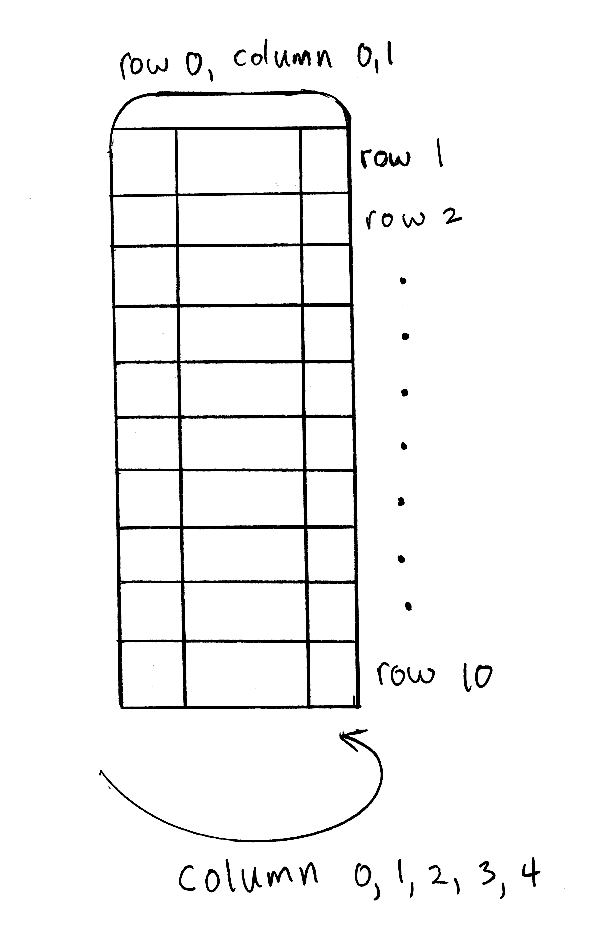 row 0, column 0,1
row 1
row 2
row 10
column 0, 1, 2, 3, 4